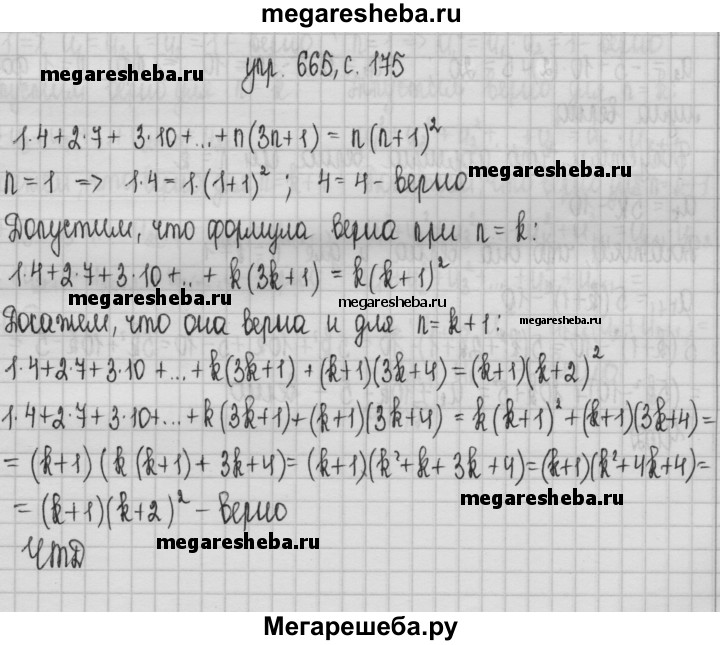 megaresheba.ru
упр. 665, с. 175
megaresheba.ru
1·4+2·7+ 3·10+...+n(3n+1) = n(n+1)²
n=1 => 1·4=1·(1+1)² ; 4=4 - верно
megaresheba.ru
Допустим, что формула верна при n=k:
1·4+2·7+3·10+...+ k(3k+1) = k(k+1)²
megaresheba.ru
megaresheba.ru
Докажем, что она верна и для n=k+1:
megaresheba.ru
1·4+2·7+3·10 +...+k(3k+1) + (k+1)(3k+4)=(k+1)(k+2)²
1·4+2·7+3·10+...+k(3k+1)+(k+1)(3k+4) = k(k+1)²+(k+1)(3k+4)=
= (k+1) (k (k+1) + 3k+4)= (k+1)(k²+k+ 3k +4)=(k+1)(k²+4k+4)=
megaresheba.ru
= (k+1)(k+2)² - верно
megaresheba.ru
ЧТД
megaresheba.ru
Мегарешеба.ру